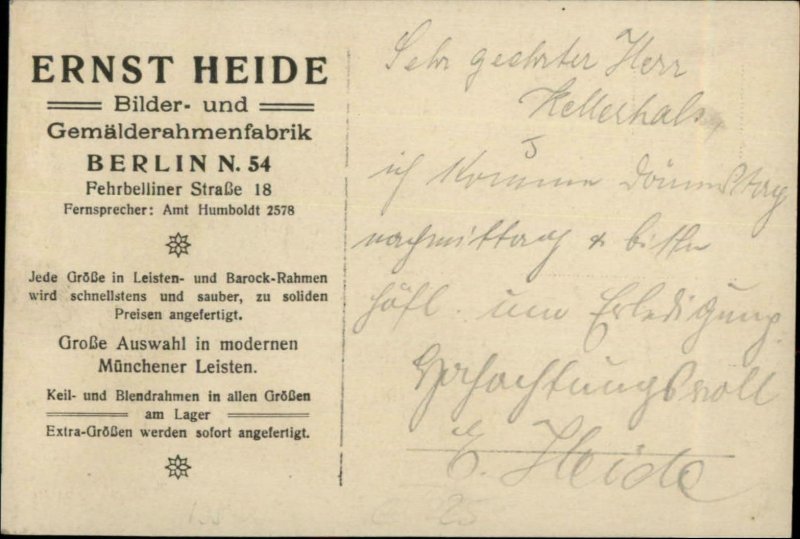 ERNST HEIDE
Bilder- und
Gemälderahmenfabrik
BERLIN N. 54
Fehrbelliner Straße 18
Fernsprecher: Amt Humboldt 2578
Jede Größe in Leisten- und Barock-Rahmen
wird schnellstens und sauber, zu soliden
Preisen angefertigt.
Große Auswahl in modernen
Münchener Leisten.
Keil- und Blendrahmen in allen Größen
am Lager
Extra-Größen werden sofort angefertigt.
Sehr geehrter Herr
Kellerhals
ich komme Donnerstag
nachmittag & bitte
höfl. um Erledigung.
Hochachtungsvoll
E. Heide
25